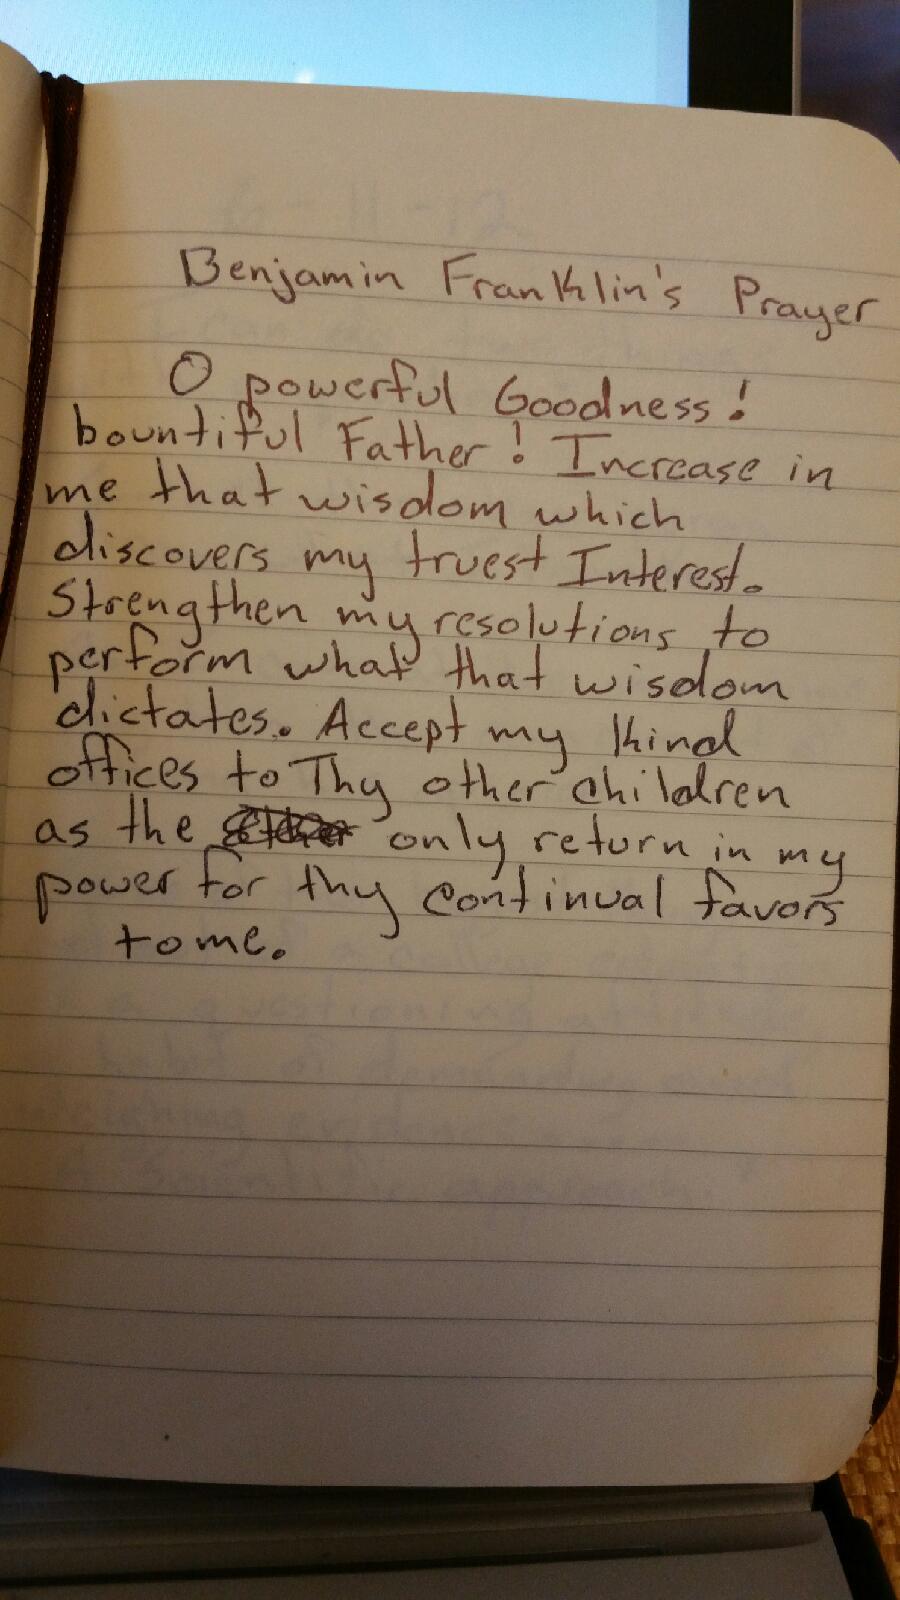 Benjamin Franklin's Prayer
O powerful Goodness!
bountiful Father! Increase in
me that wisdom which
discovers my truest Interest.
Strengthen my resolutions to
perform what that wisdom
dictates. Accept my kind
offices to Thy other children
as the only return in my
power for thy continual favors
to me.